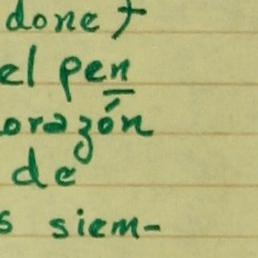 done t
el pen
orazón
de
s siem-